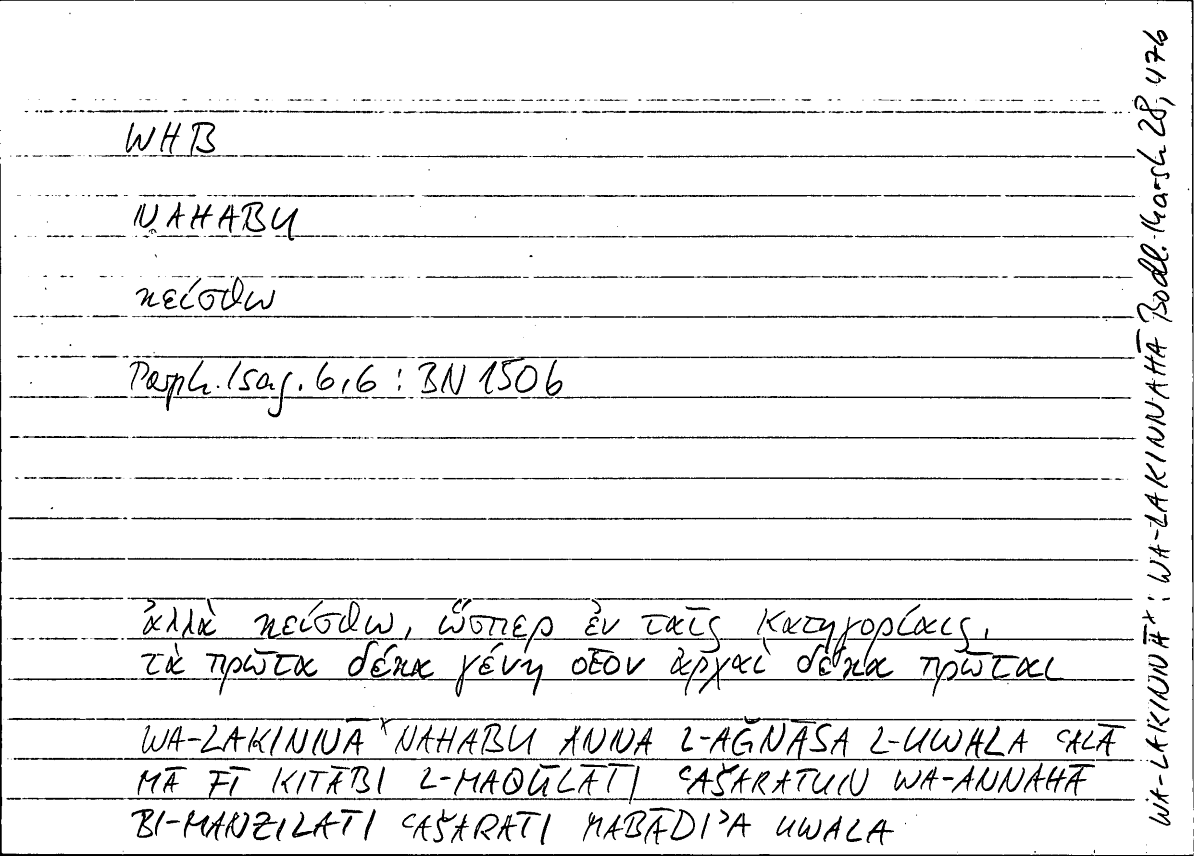 WHB
NAHABU
κείσθω
Porph. Isag. 6,6 : BN 1506
ἀλλὰ κείσθω, ὥσπερ ἐν ταῖς Κατηγορίαις,
τὰ πρῶτα δέκα γένη οἷον ἀρχαὶ δέκα πρῶται
WA-LAKINNĀ* NAHABU ANNA L-AǦNĀSA L-UWALA ʿALĀ
MĀ FĪ KITĀBI L-MAQŪLĀTI ʿAŠARATUN WA-ANNAHĀ
BI-MANZILATI ʿAŠARATI MABĀDIʾA UWALA
WA-LAKINNĀ* : WA-LAKINNAHĀ Bodl. Marsh 28, 47b